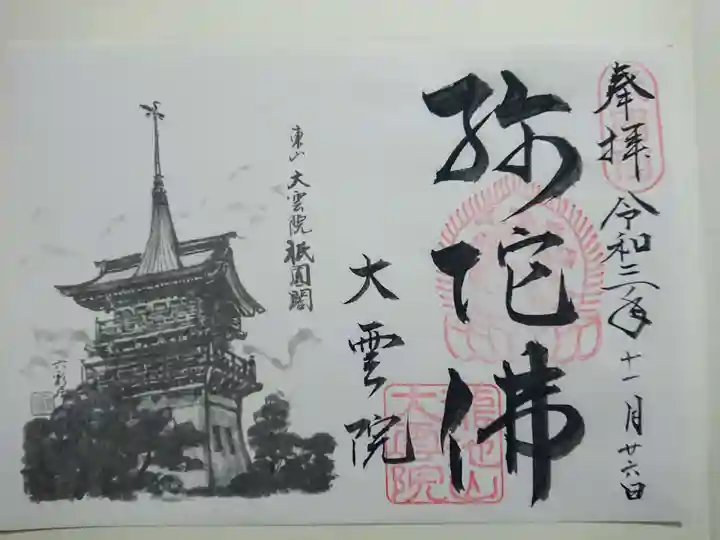 奉拝
令和三年十一月廿六日
弥陀佛
大雲院
東山大雲院祇園閣
龍池山
大雲院